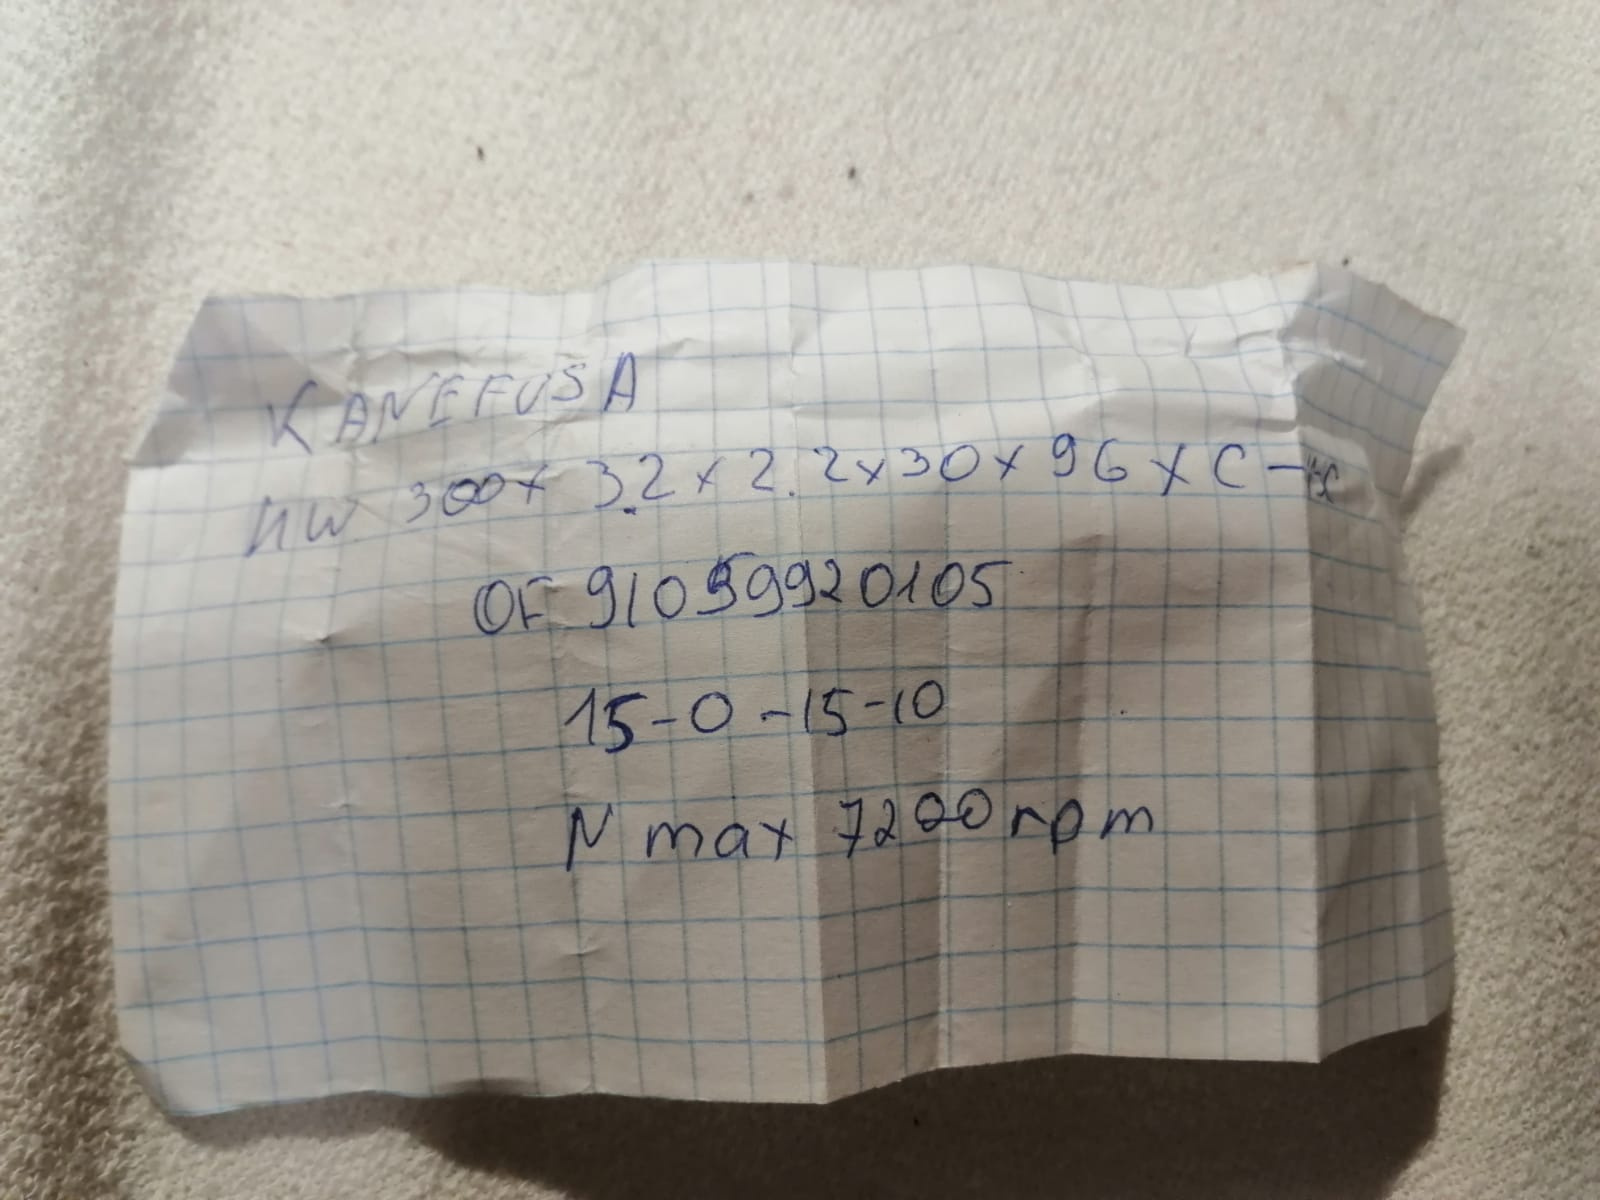 KANEFUSA
HW 300x 3.2 x 2.2x30x 96 x C -
OF 91059920105
15-0-15-10
N max 7200rpm